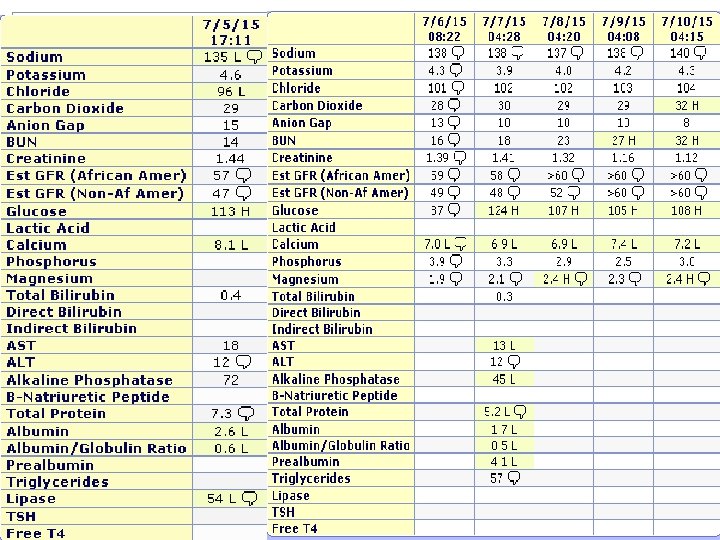 7/5/15
17:11
Sodium 135 L
Potassium 4.6
Chloride 96 L
Carbon Dioxide 29
Anion Gap 15
BUN 14
Creatinine 1.44
Est GFR (African Amer) 57
Est GFR (Non-Af Amer) 47
Glucose 113 H
Lactic Acid
Calcium 8.1 L
Phosphorus
Magnesium
Total Bilirubin 0.4
Direct Bilirubin
Indirect Bilirubin
AST 18
ALT 12
Alkaline Phosphatase 72
B-Natriuretic Peptide
Total Protein 7.3
Albumin 2.6 L
Albumin/Globulin Ratio 0.6 L
Prealbumin
Triglycerides
Lipase 54 L
TSH
Free T4
7/6/15 7/7/15 7/8/15 7/9/15 7/10/15
08:22 04:28 04:20 04:08 04:15
Sodium 138 138 137 138 140
Potassium 4.3 3.9 4.0 4.2 4.3
Chloride 101 102 102 103 104
Carbon Dioxide 28 30 29 29 32 H
Anion Gap 13 10 10 10 8
BUN 16 18 23 27 H 32 H
Creatinine 1.39 1.41 1.32 1.16 1.12
Est GFR (African Amer) 59 58 >60 >60 >60
Est GFR (Non-Af Amer) 49 48 52 >60 >60
Glucose 124 H 107 H 105 H 108 H
Lactic Acid
Calcium 7.0 L 6.9 L 6.9 L 7.4 L 7.2 L
Phosphorus 3.9 3.3 2.9 2.5 3.0
Magnesium 1.9 2.1 2.4 H 2.3 2.4 H
Total Bilirubin 0.3
Direct Bilirubin
Indirect Bilirubin
AST 13 L
ALT 12
Alkaline Phosphatase 45 L
B-Natriuretic Peptide
Total Protein 5.2 L
Albumin 1.7 L
Albumin/Globulin Ratio 0.5 L
Prealbumin 4.1 L
Triglycerides 57
Lipase
TSH
Free T4